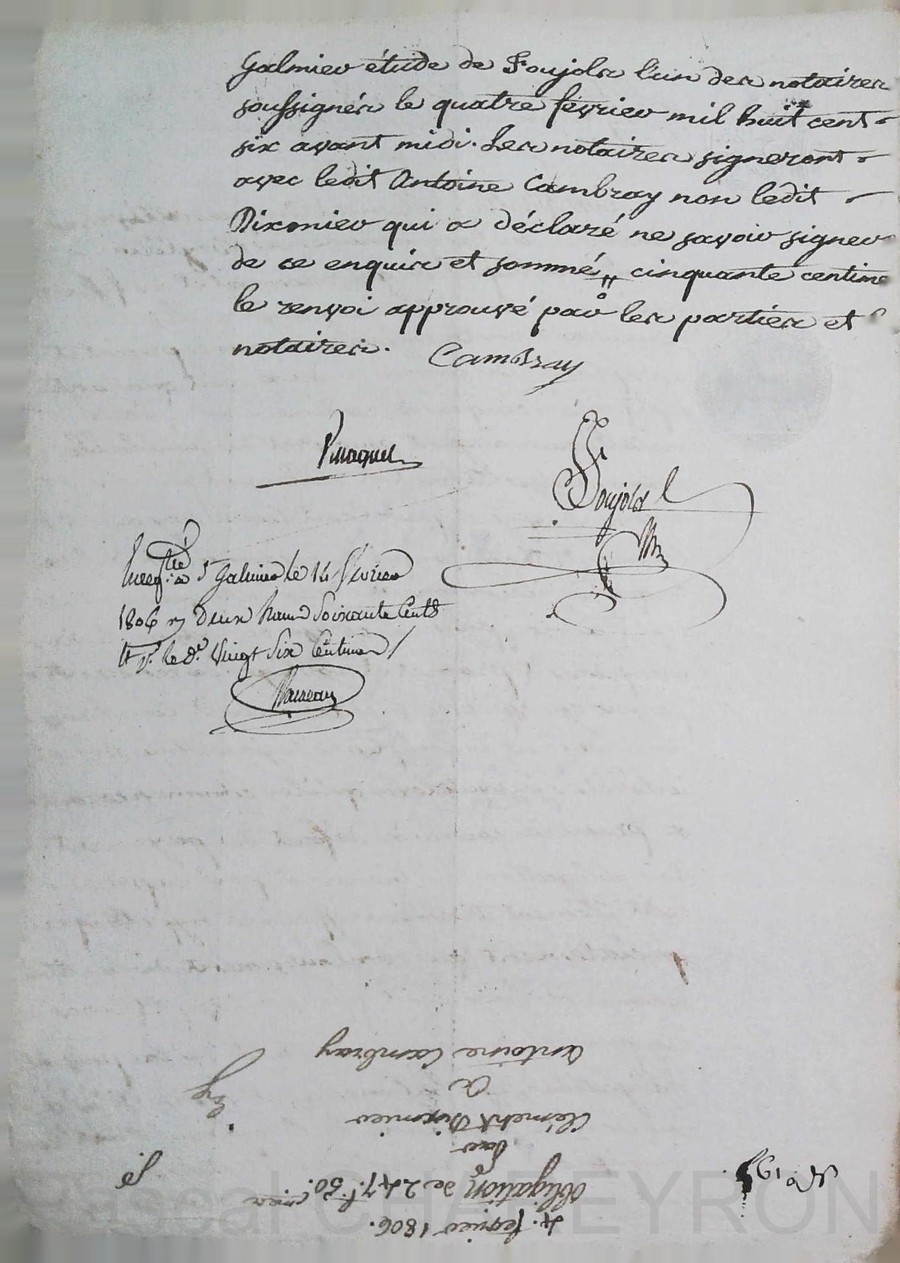 Galmier étude de Foujols l'un des notaires
soussignés le quatre fevrier mil huit cent
six avant midi. Les notaires signeront
avec ledit Antoine Cambray non ledit
Dixmier qui a déclaré ne savoir signer
de ce enquis et sommé,, cinquante centime
le renvoi approuvé par les parties et
notaires. Cambray
Foujols
St Galmier le 14 fevrier
1806 Deux francs Soixante Cents
Vingt Six Centimes
4. fevrier 1806.
obligation de 247.f 50.c
par
Clément Dixmier
a
Antoine Cambray
Pascal CHAPEYRON